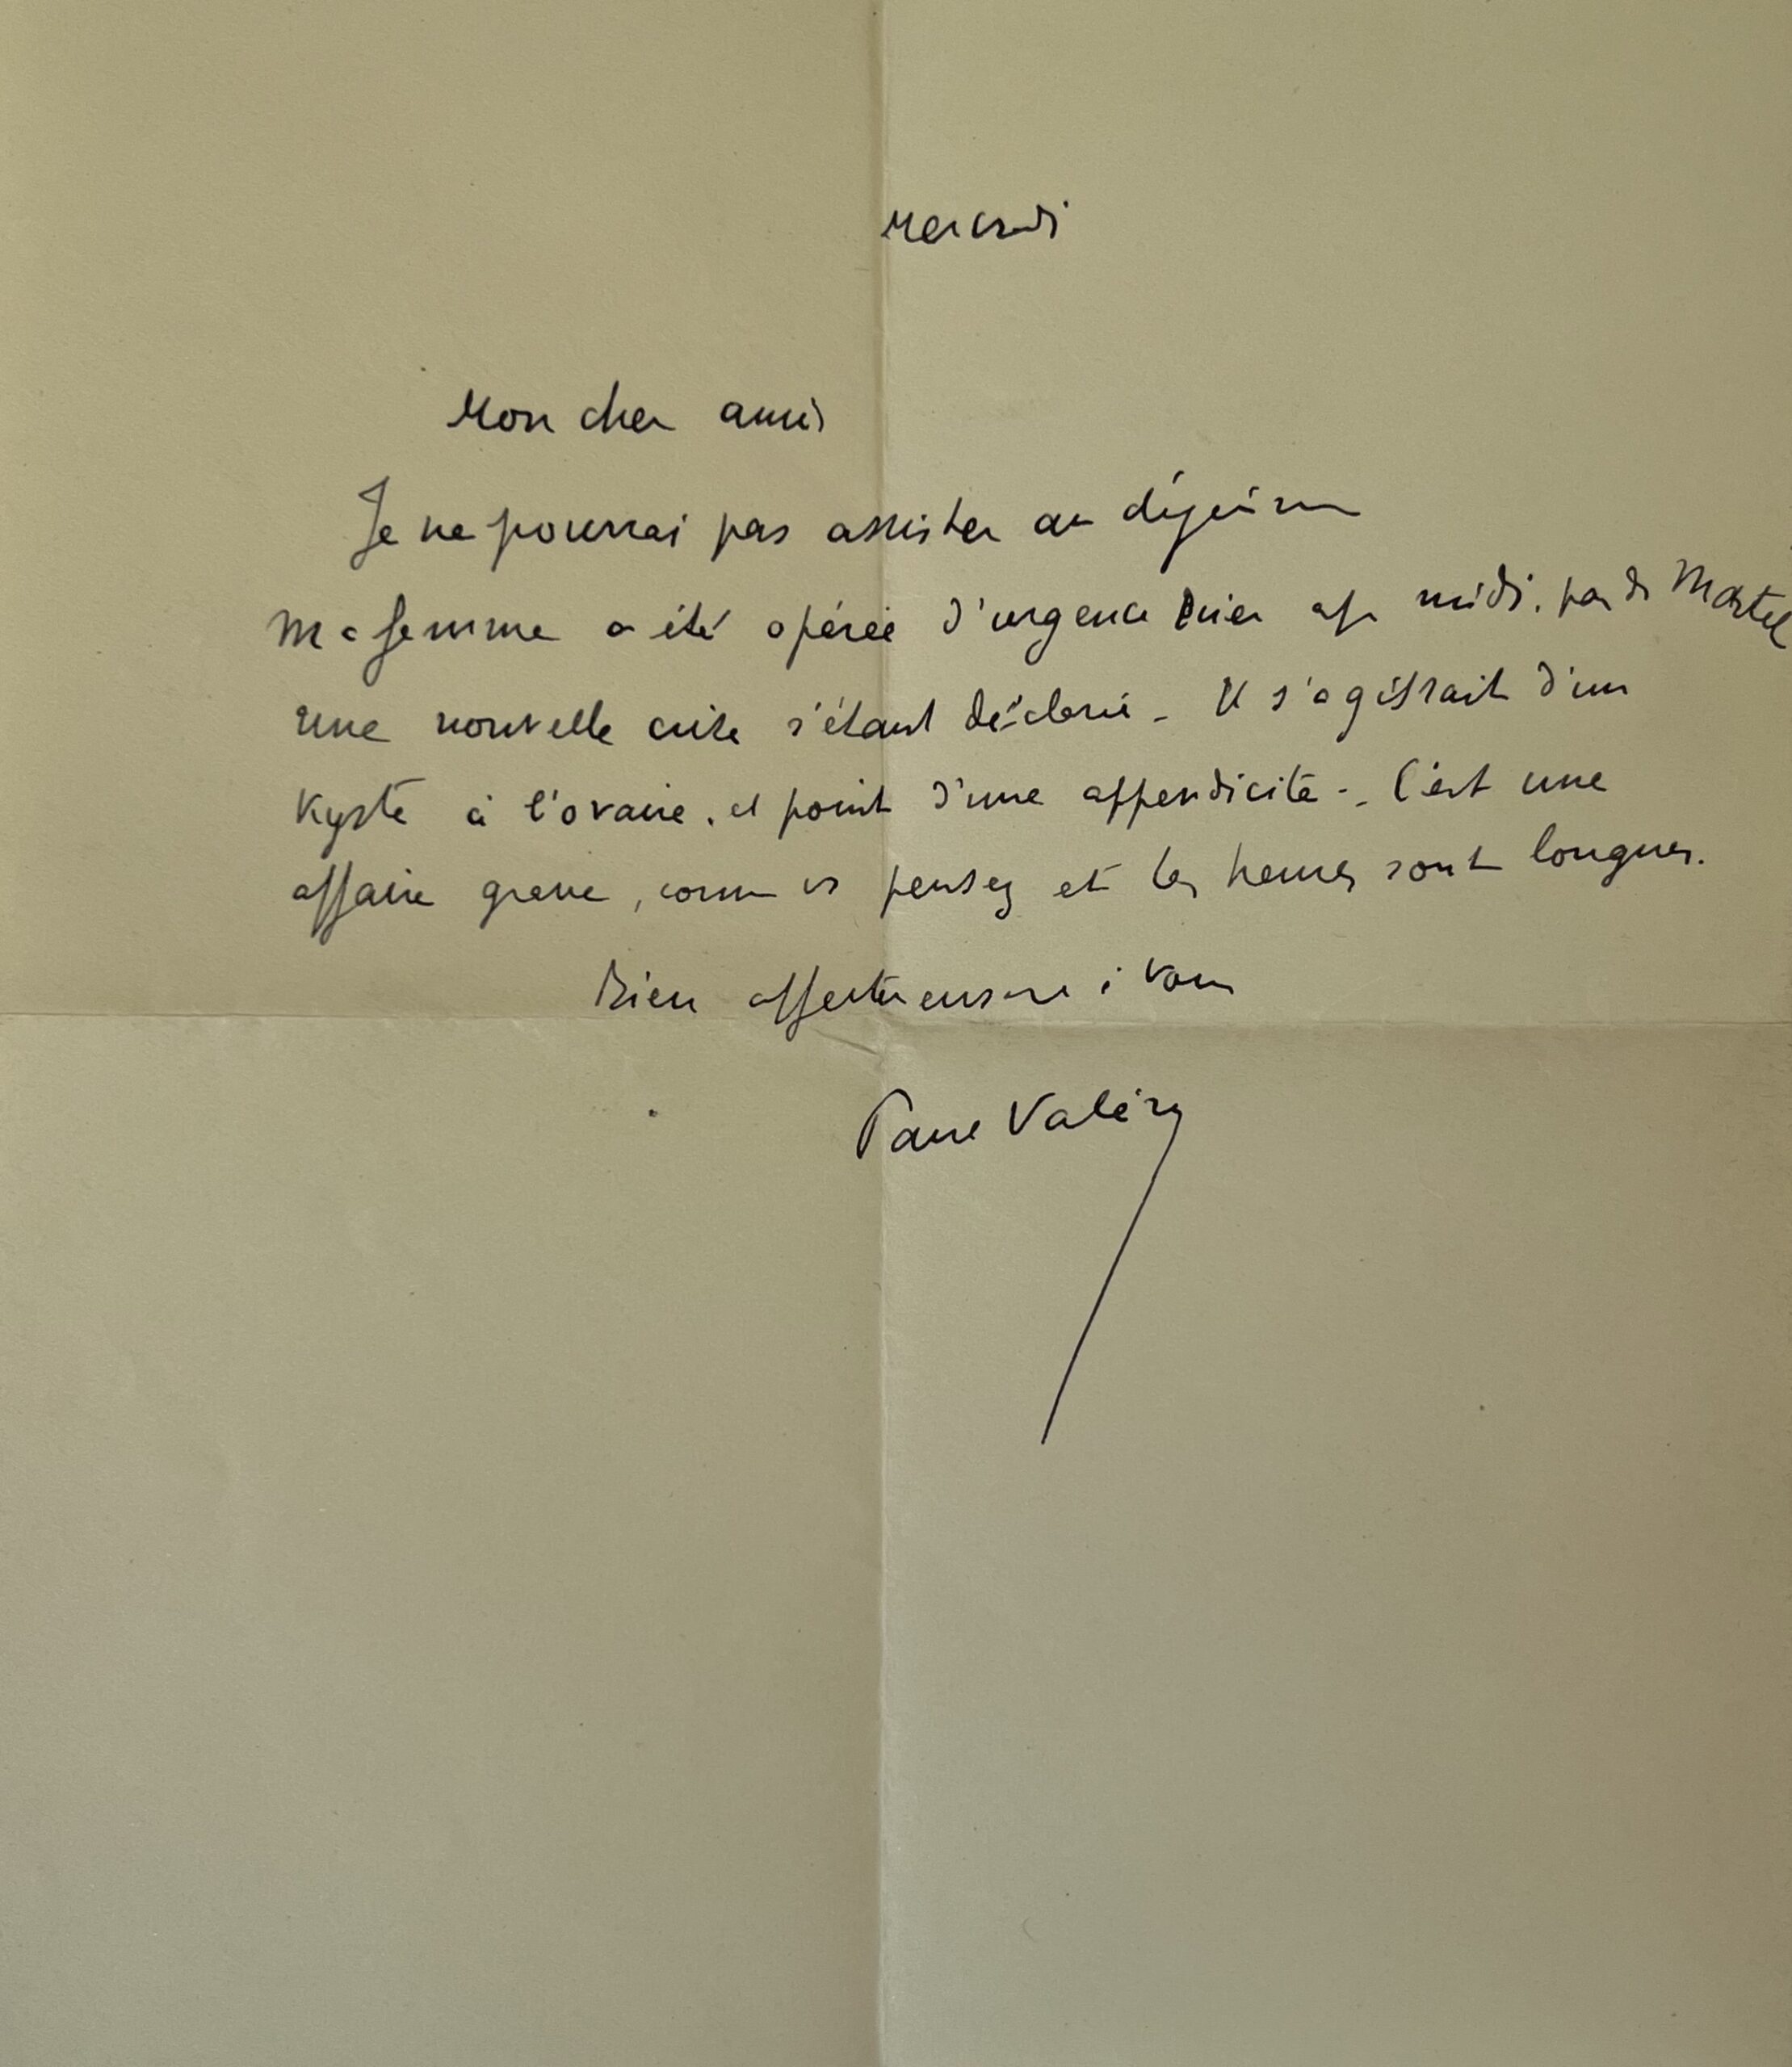 Mercredi
Mon cher ami
Je ne pourrai pas assister au déjeuner
Ma femme a été opérée d'urgence hier ap midi, par de Martel
une nouvelle crise s'étant déclarée - Il s'agissait d'un
Kyste à l'ovaire, et point d'une appendicite -. C'est une
affaire grave, comme vs pensez et les heures sont longues.
Bien affectueusement à vous
Paul Valéry